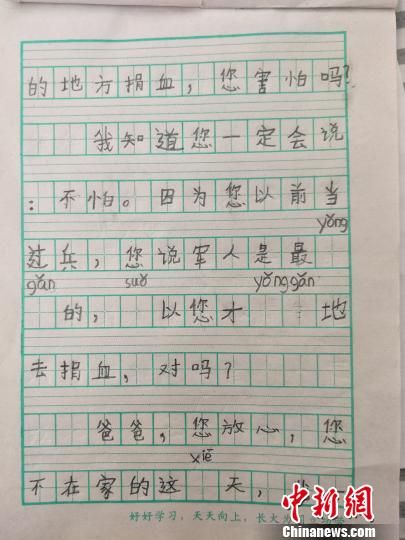 的地方捐血，您害怕吗？
我知道您一定会说
：不怕。因为您以前当
yǒng
过兵，您说军人是最
gǎn suǒ yǒnggǎn
的， 以您才 地
去捐血，对吗？
爸爸，您放心，您
xiē
不在家的这 天，
好好学习，天天向上，长大
中新网